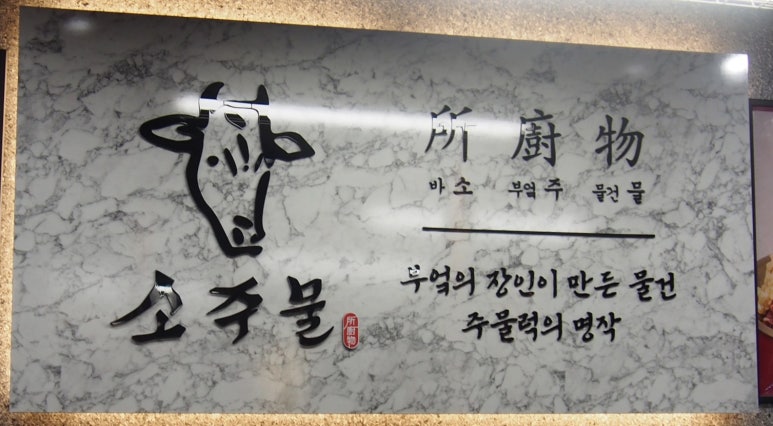 소주물
所廚物
所廚物
바 소 부엌 주 물건 물
부엌의 장인이 만든 물건
주물럭의 명작